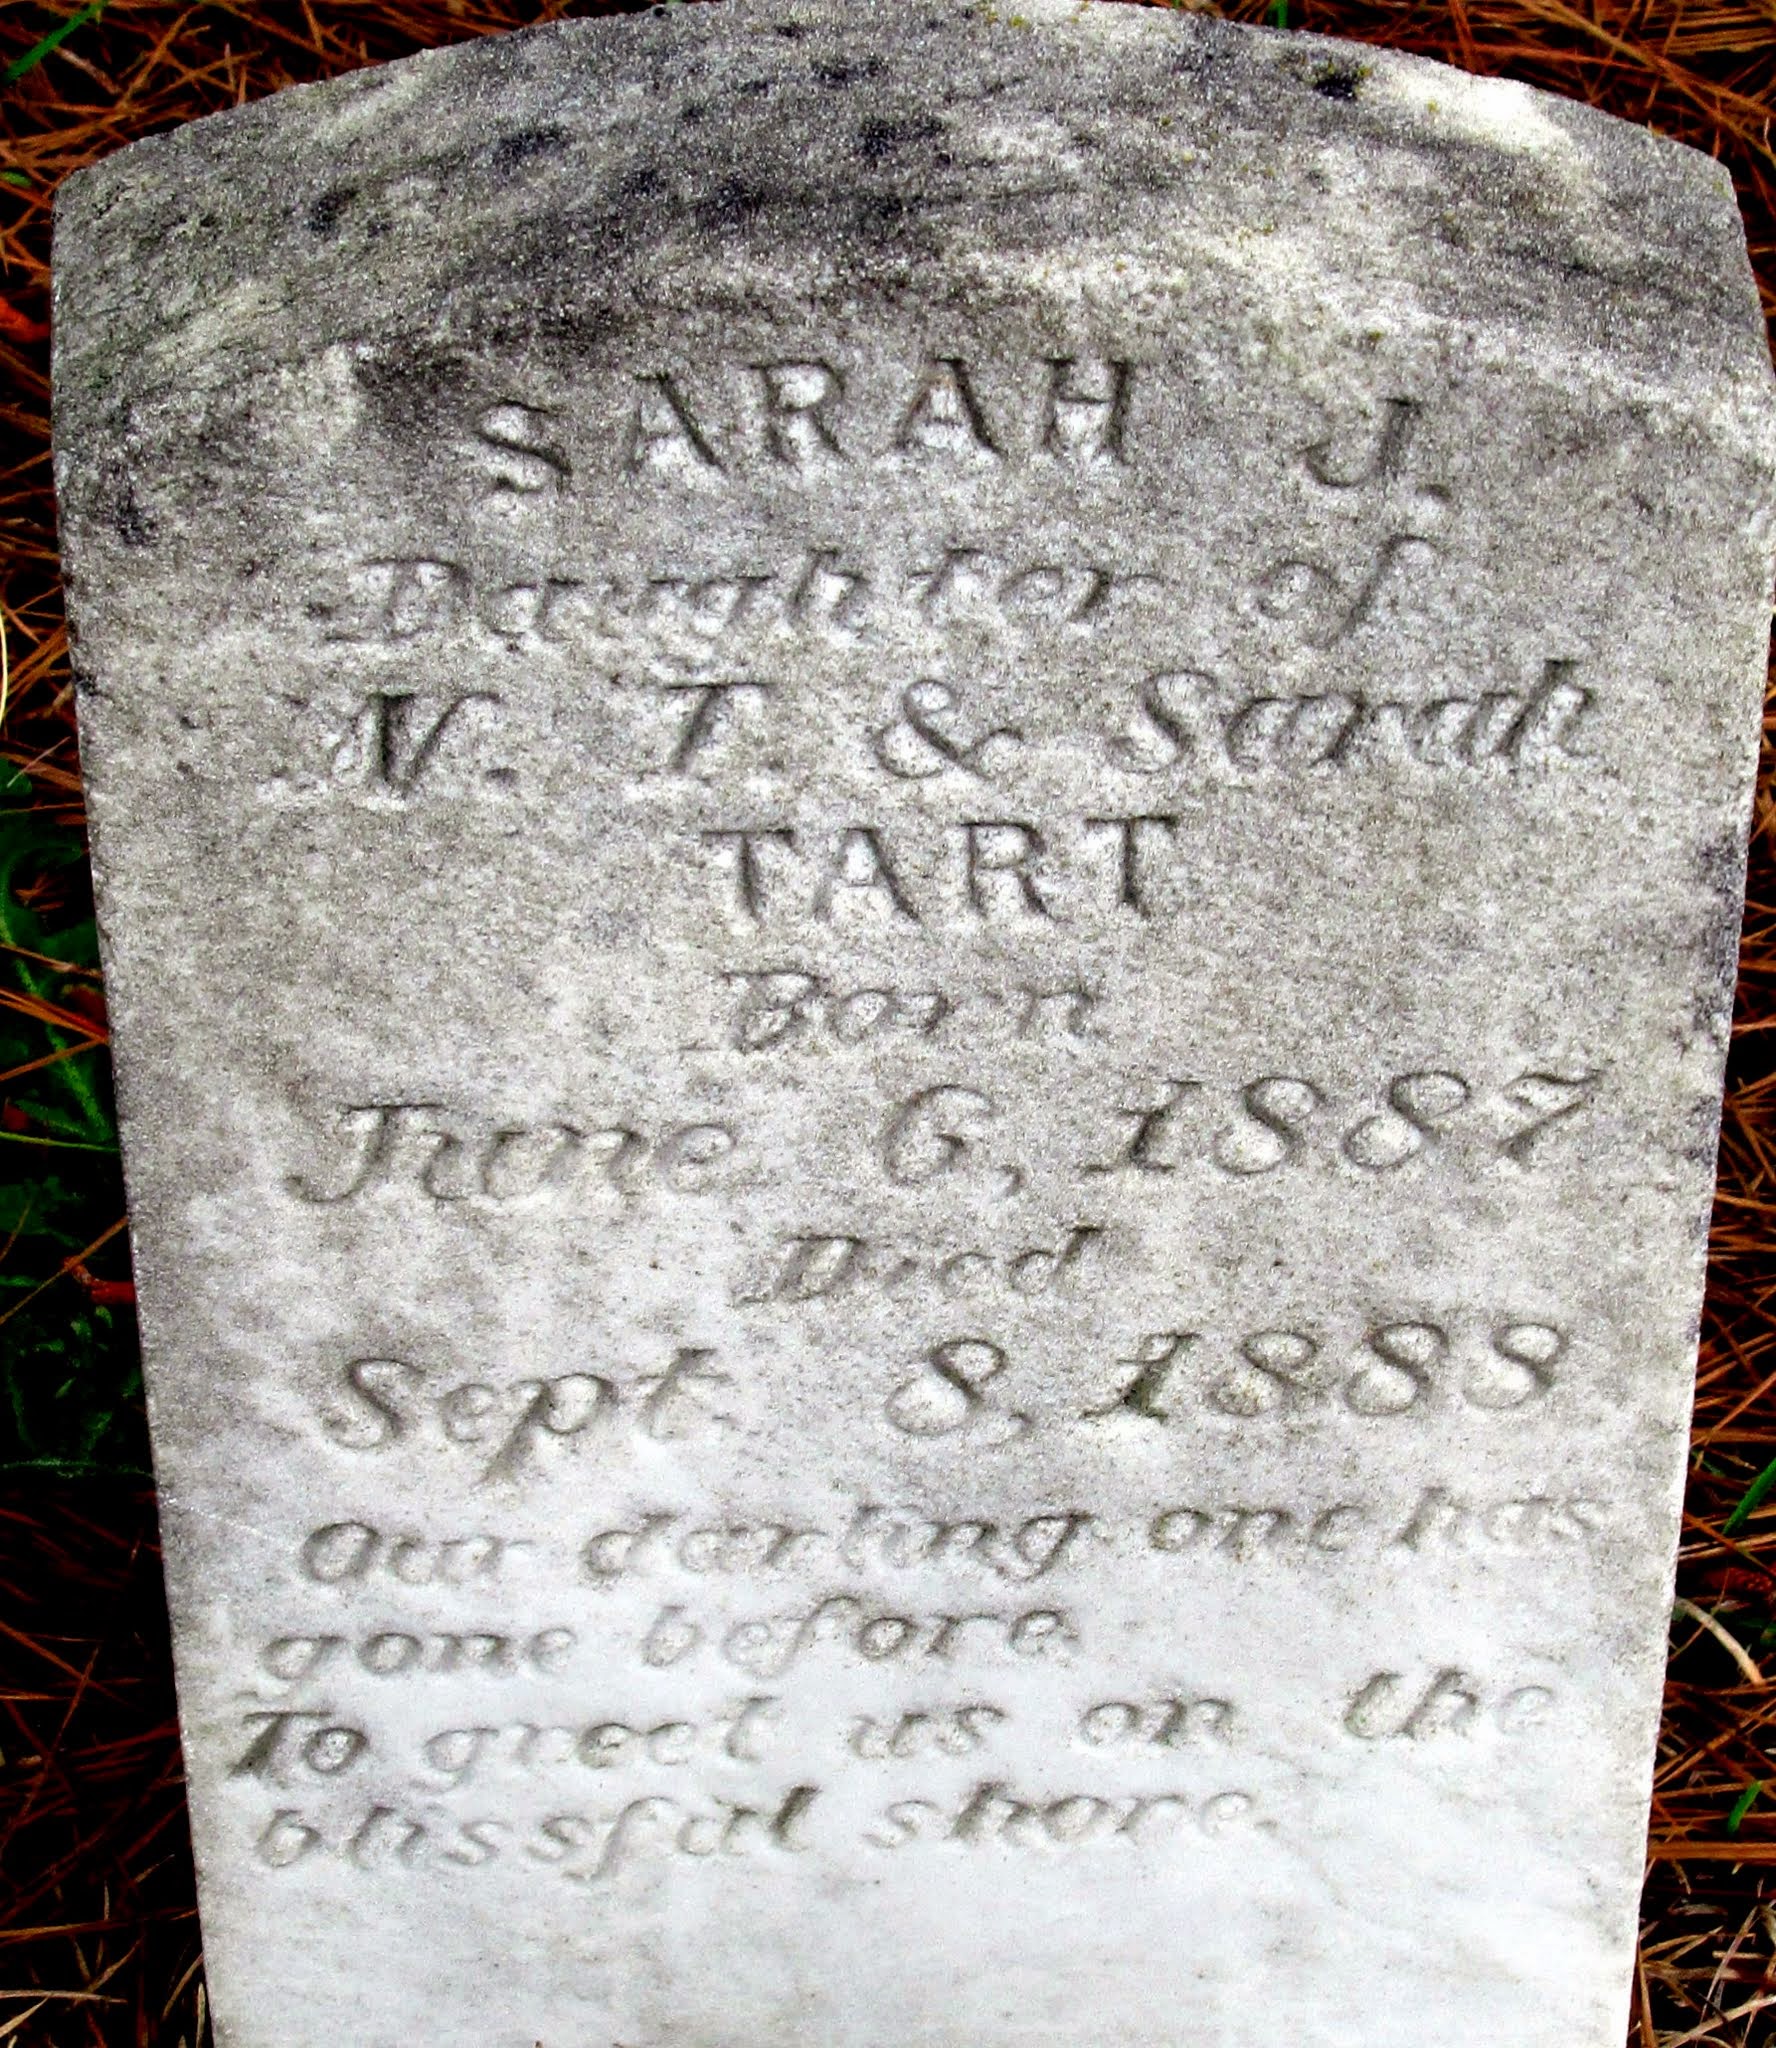 SARAH J.
Daughter of
N. T. & Sarah
TART
Born
June 6, 1887
Died
Sept. 8, 1888
Our darling one has
gone before
To greet us on the
blissful shore.